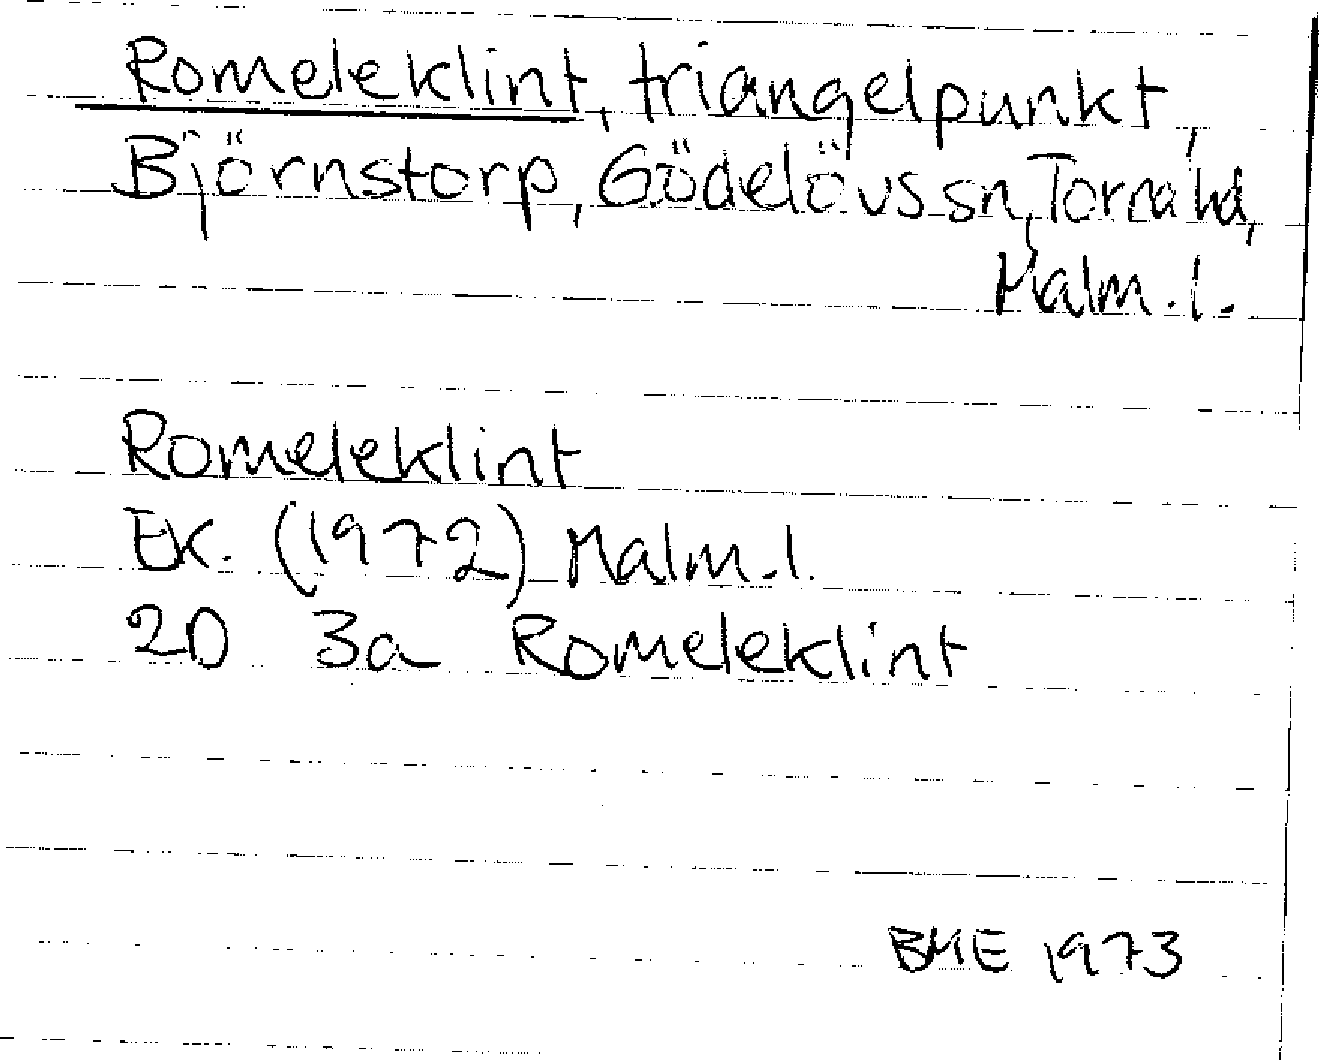 Romeleklint, triangelpunkt,
Björnstorp, Gödelövs sn, Torna hd,
Malm.l.
Romeleklint
EK. (1972) Malm.l.
2D 3a Romeleklint
BME 1973